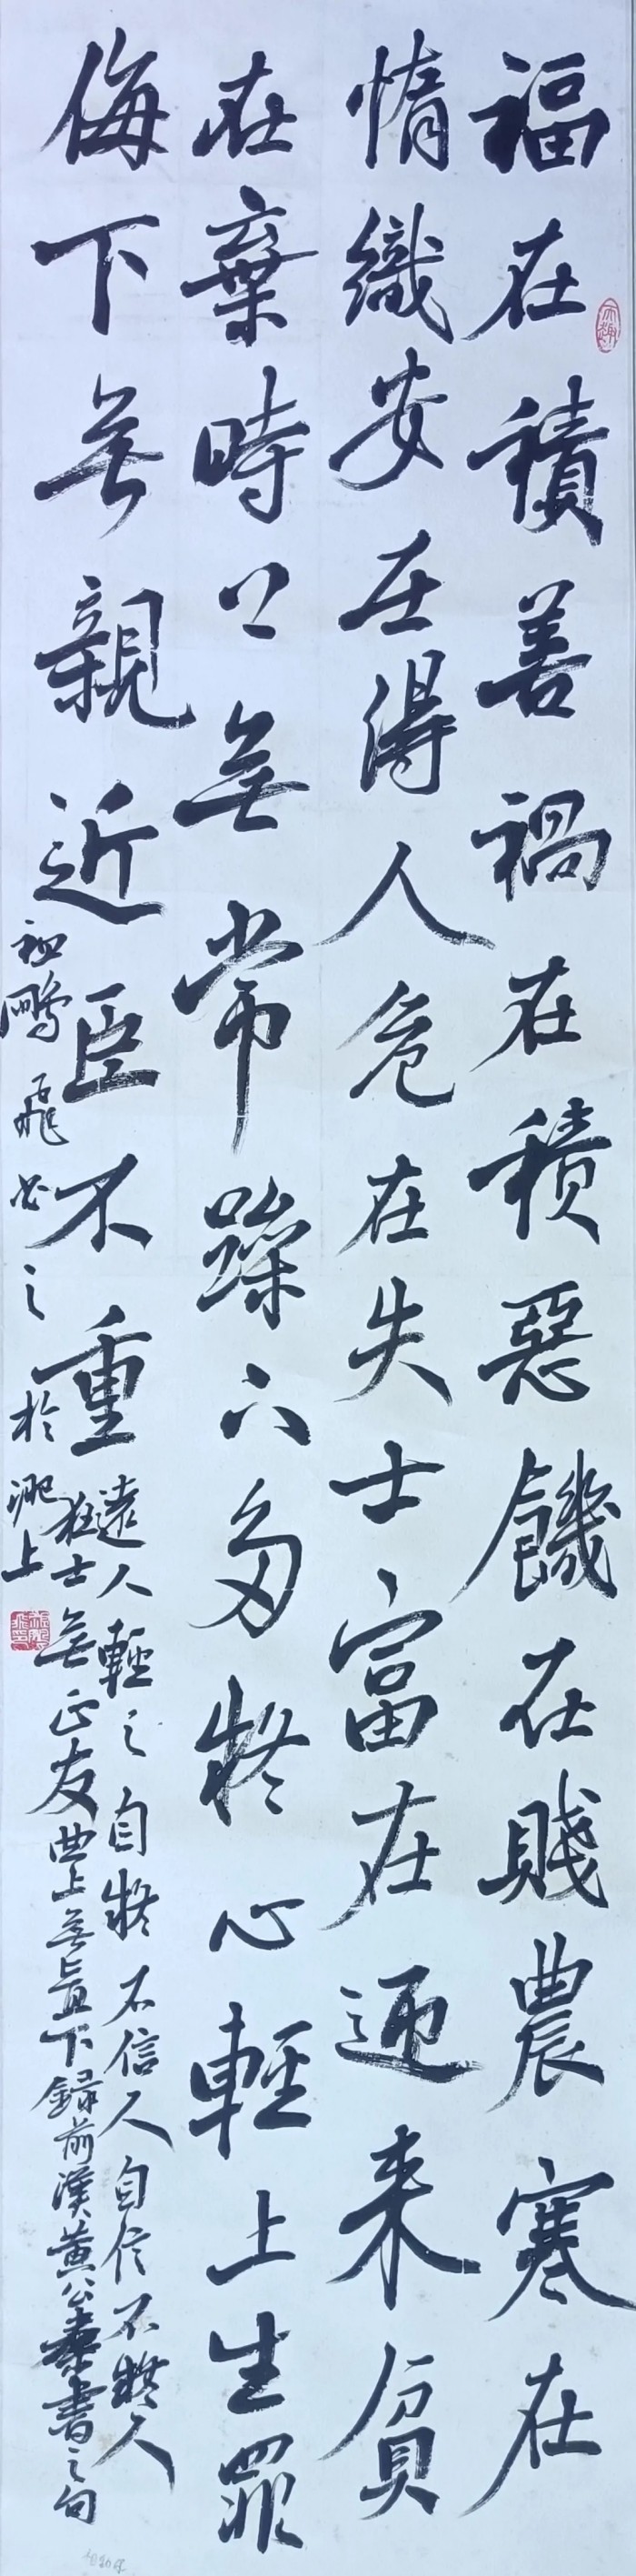 福在積善禍在積惡饑在賤農寒在
惰織安在得人危在失士富在迎来貧
在棄時上無常躁下多疑心輕上生罪
侮下無親近臣不重
遠人輕之自疑不信人自信不疑人
枉士無正友曲上無直下録前漢黄公素書之句
鵬飛書之於淝上